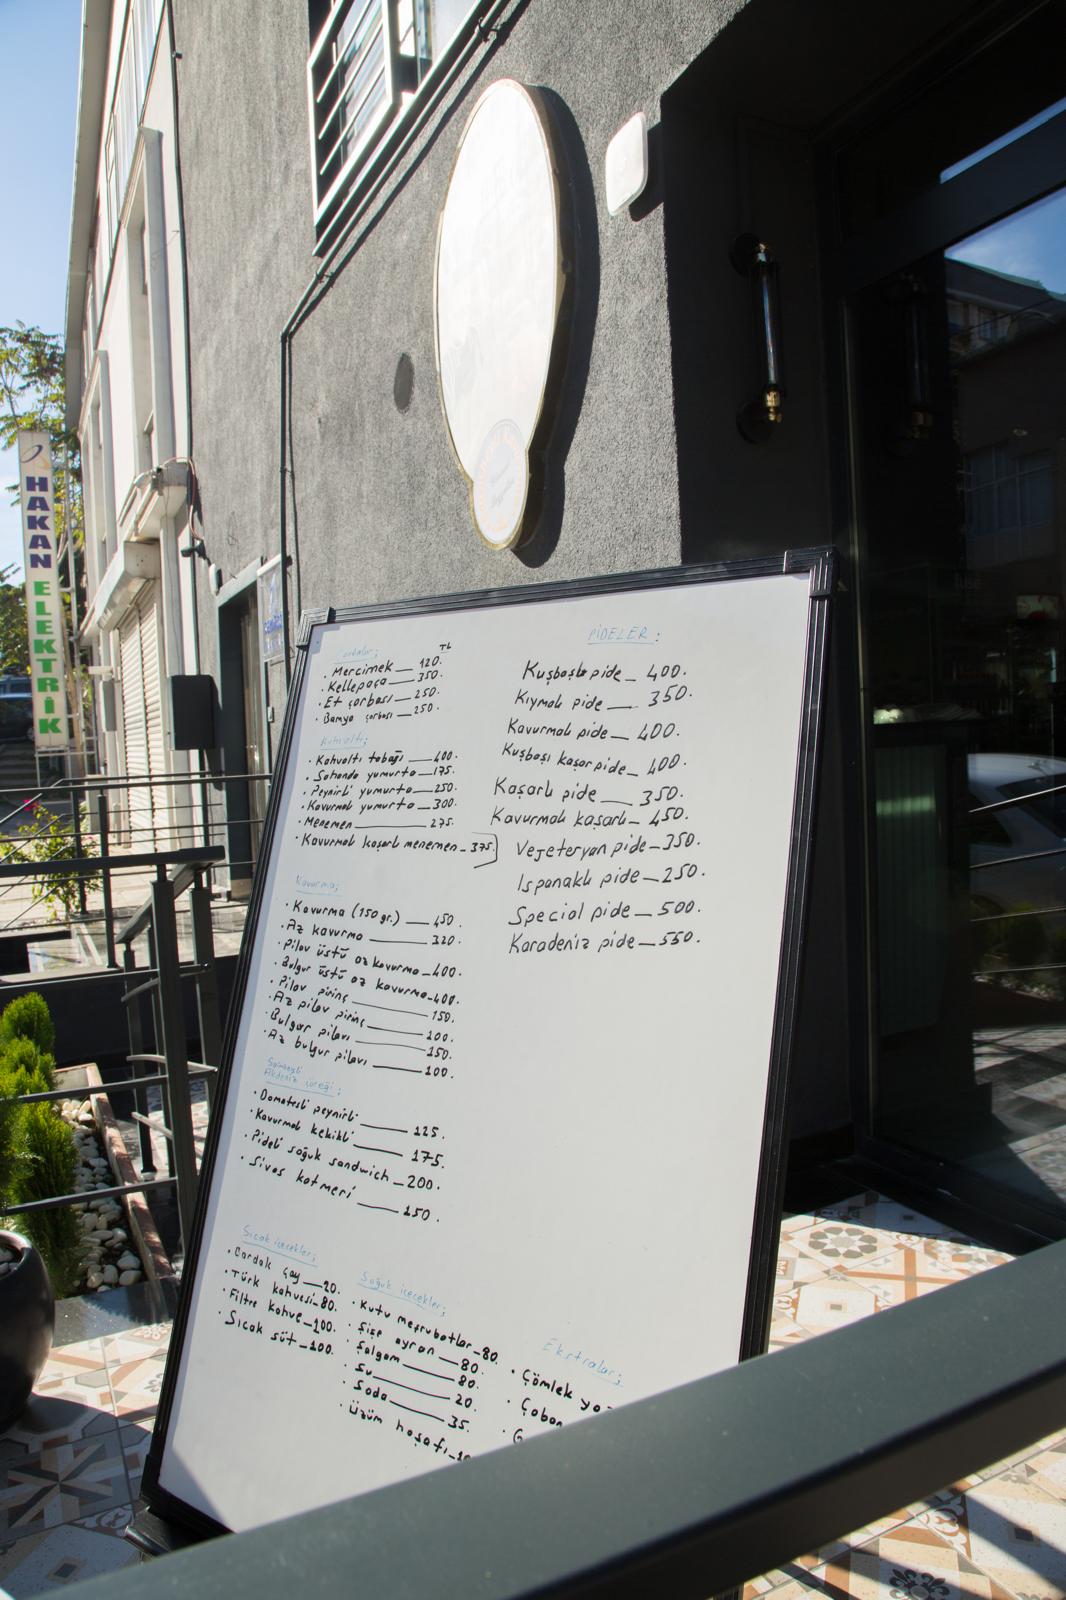 HAKAN ELEKTRİK
TL
Mercimek — 120.
Kellepaça — 350.
Et çorbası — 250.
Bamya çorbası — 250.
Kahvaltı;
Kahvaltı tabağı — 400.
Sahanda yumurta — 175.
Peynirli yumurta — 250.
Kavurmalı yumurta — 300.
Menemen — 275.
Kavurmalı kaşarlı menemen — 375.
Kavurma;
Kavurma (150 gr.) — 450
Az kavurma — 320.
Pilav üstü az kavurma — 400.
Bulgur üstü az kavurma — 400.
Pilav pirinç — 150.
Az pilav pirinç — 100.
Bulgur pilavı — 150.
Az bulgur pilavı — 100.
Akdeniz çöreği;
Domatesli peynirli — 125.
Kavurmalı kekikli — 175.
Pideli soğuk sandwich — 200.
Sivas katmeri — 150.
Sıcak içecekler;
Bardak çay — 20.
Türk kahvesi — 80.
Filtre kahve — 100.
Sıcak süt — 100.
Soğuk içecekler;
Kutu meşrubatlar — 80.
Şişe ayran — 80.
Şalgam — 80.
Su — 20.
Soda — 35.
Üzüm hoşafı
PİDELER:
Kuşbaşılı pide — 400.
Kıymalı pide — 350.
Kavurmalı pide — 400.
Kuşbaşı kaşar pide — 400.
Kaşarlı pide — 350.
Kavurmalı kaşarlı — 450.
Vejeteryan pide — 350.
Ispanaklı pide — 250.
Special pide — 500.
Karadeniz pide — 550.
Ekstralar;
Çömlek yo
Çoban